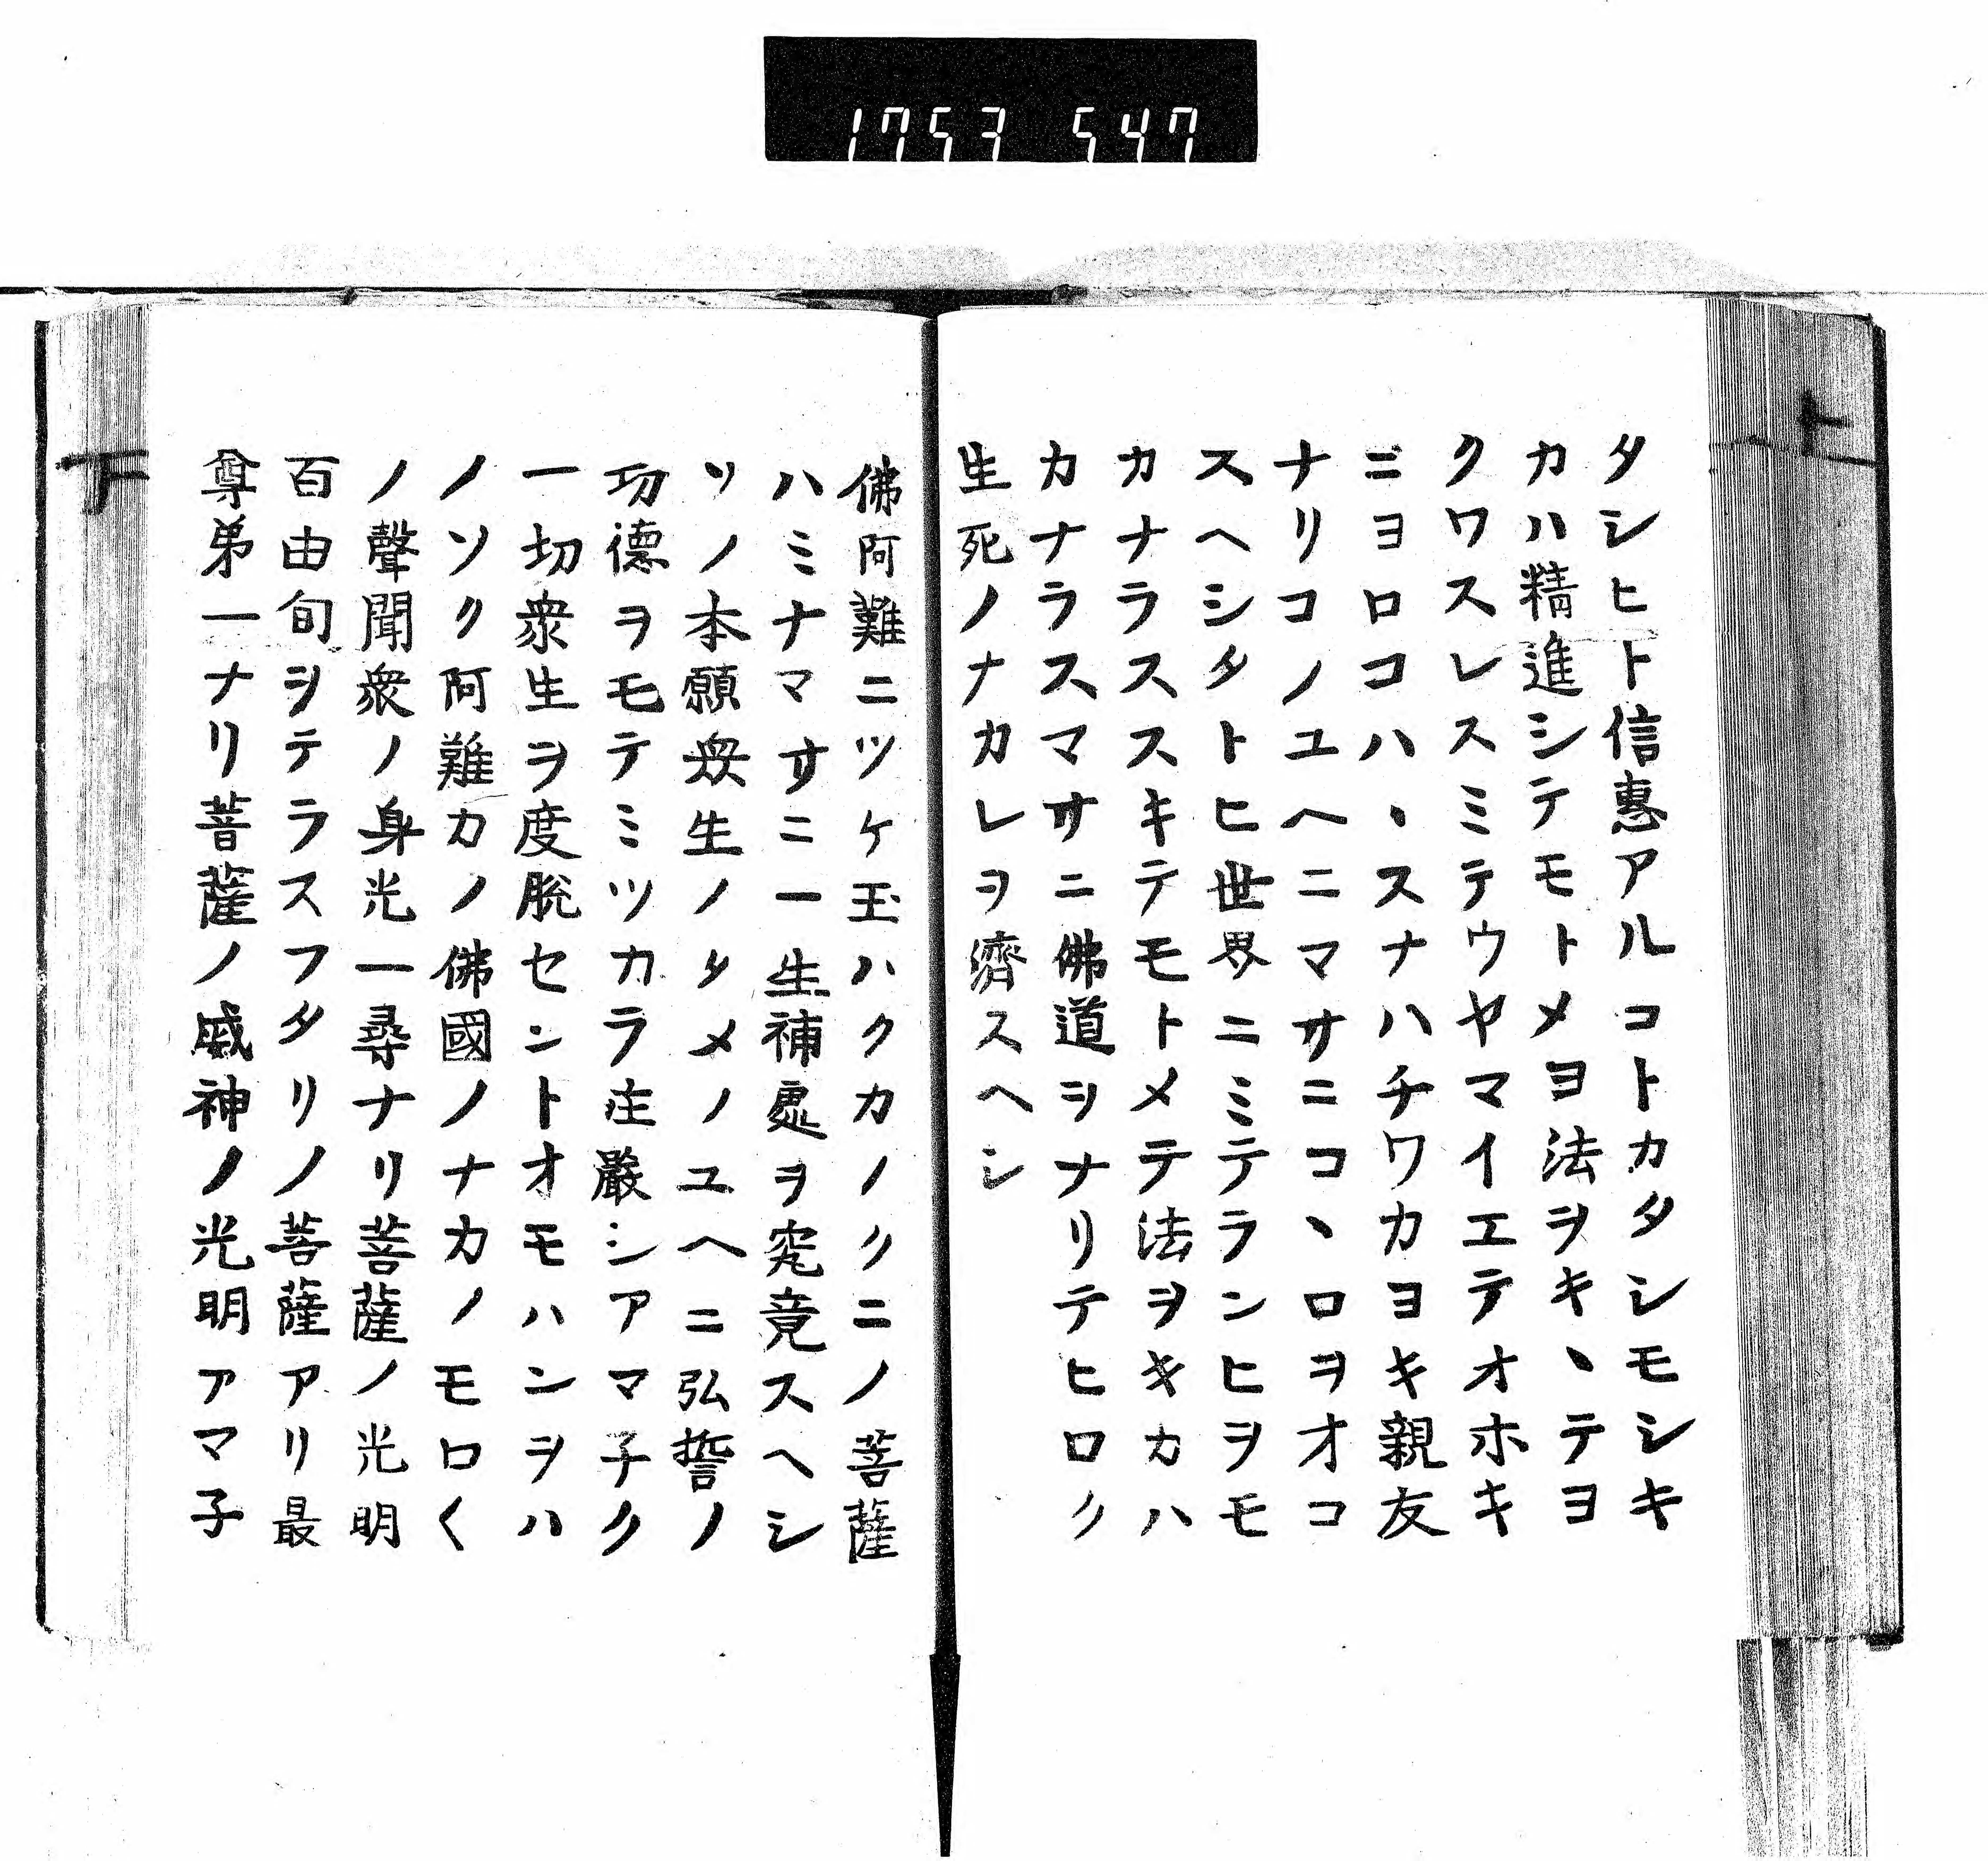 1753 547
上
タシヒト信惠アルコトカタシモシキ
カハ精進シテモトメヨ法ヲキヽテヨ
クワスレスミテウヤマイエテオホキ
ニヨロコハヽスナハチワカヨキ親友
ナリコノユヘニマサニコヽロヲオコ
スヘシタトヒ世界ニミテランヒヲモ
カナラススキテモトメテ法ヲキカハ
カナラスマサニ佛道ヲナリテヒロク
生死ノナカレヲ濟スヘシ
佛阿難ニツケ玉ハクカノクニノ菩薩
ハミナマサニ一生補處ヲ究竟スヘシ
ソノ本願衆生ノタメノユヘニ弘誓ノ
功德ヲモテミツカラ庄嚴シアマ子ク
一切衆生ヲ度脫セントオモハンヲハ
ノソク阿難カノ佛國ノナカノモロ〱
ノ聲聞衆ノ身光一尋ナリ菩薩ノ光明
百由旬ヲテラスフタリノ菩薩アリ最
尊弟一ナリ菩薩ノ威神ノ光明アマ子
下